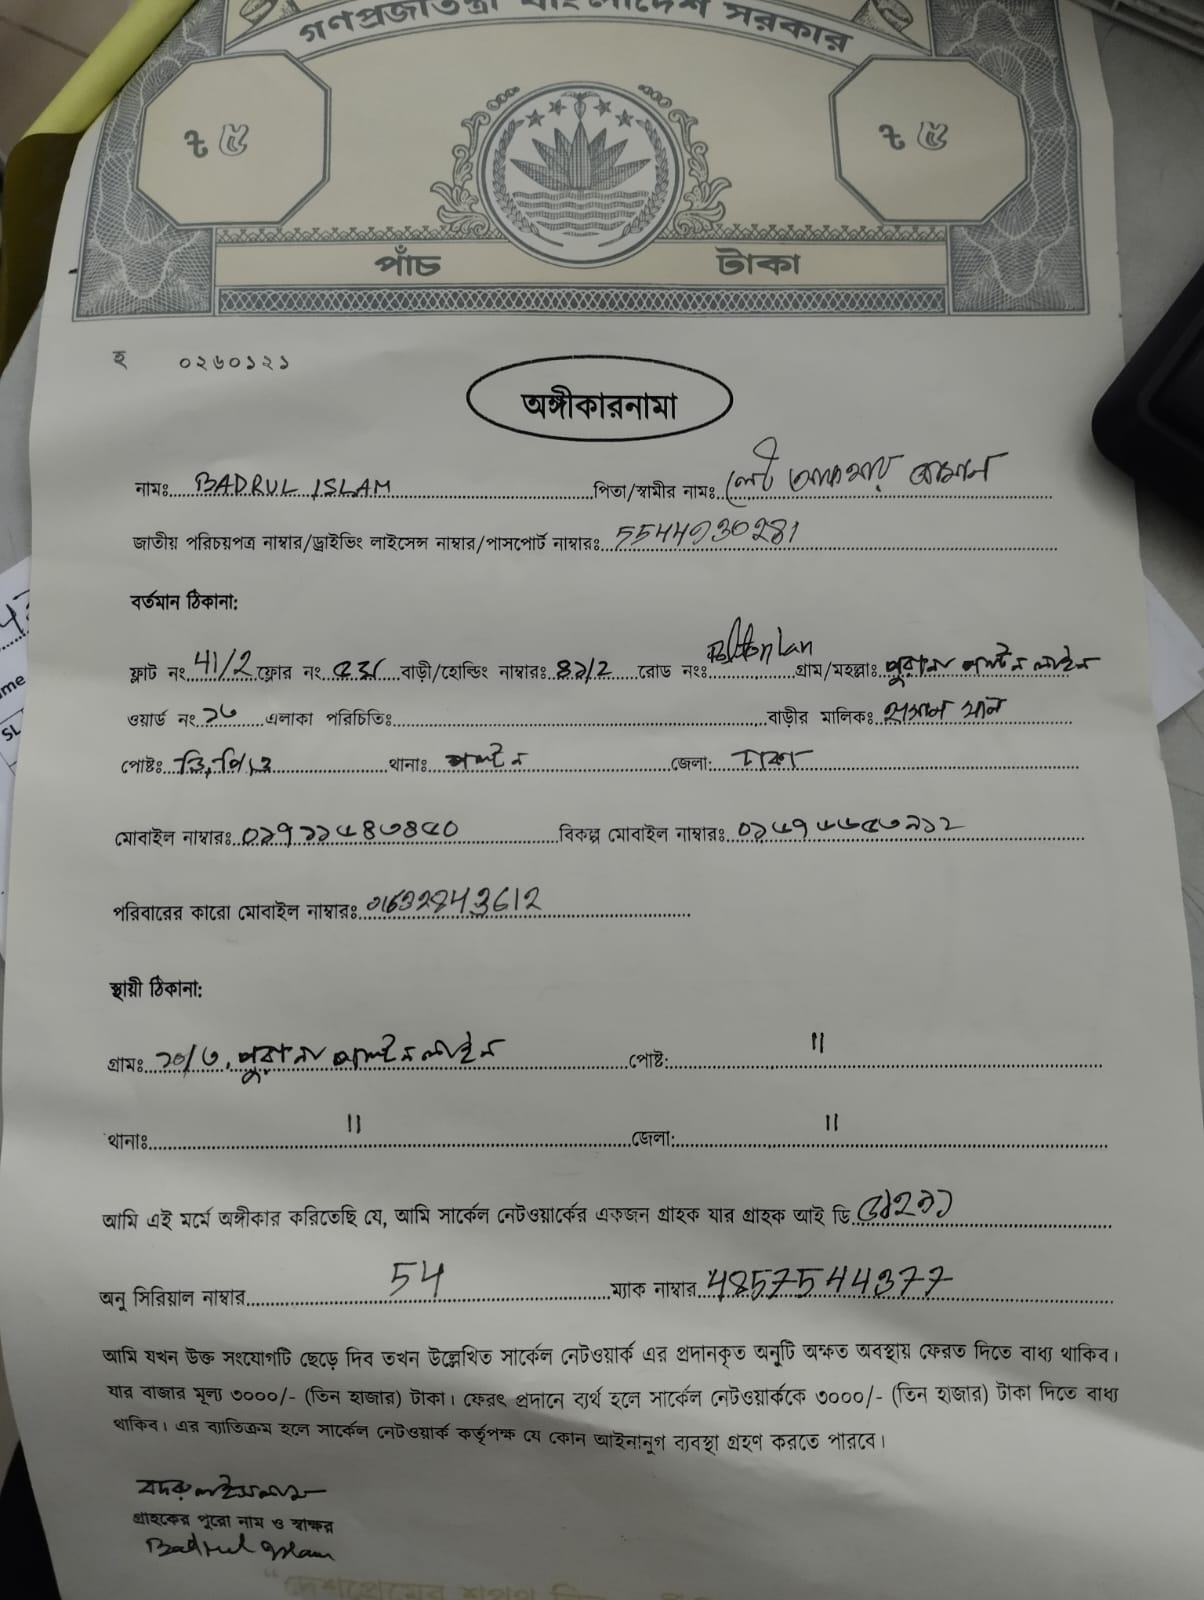 গণপ্রজাতন্ত্রী বাংলাদেশ সরকার
৳ ৫ ৳ ৫
পাঁচ টাকা
হ ০২৬০১২১
অঙ্গীকারনামা
নামঃ BADRUL ISLAM পিতা/স্বামীর নামঃ লেট
জাতীয় পরিচয়পত্র নাম্বার/ড্রাইভিং লাইসেন্স নাম্বার/পাসপোর্ট নাম্বারঃ 5544930281
বর্তমান ঠিকানা:
ফ্লাট নং 41/2 ফ্লোর নং বাড়ী/হোল্ডিং নাম্বারঃ ৪১/2 রোড নংঃ গ্রাম/মহল্লাঃ পুরানা পল্টন লাইন
ওয়ার্ড নং ১৩ এলাকা পরিচিতিঃ বাড়ীর মালিকঃ
পোষ্টঃ জি,পি,ও থানাঃ পল্টন জেলা: ঢাকা
মোবাইল নাম্বারঃ বিকল্প মোবাইল নাম্বারঃ
পরিবারের কারো মোবাইল নাম্বারঃ 01632843612
স্থায়ী ঠিকানা:
গ্রামঃ ১০/৩, পুরানা পল্টন লাইন পোষ্ট: "
থানাঃ " জেলা: "
আমি এই মর্মে অঙ্গীকার করিতেছি যে, আমি সার্কেল নেটওয়ার্কের একজন গ্রাহক যার গ্রাহক আই ডি
অনু সিরিয়াল নাম্বার 54 ম্যাক নাম্বার 4857544377
আমি যখন উক্ত সংযোগটি ছেড়ে দিব তখন উল্লেখিত সার্কেল নেটওয়ার্ক এর প্রদানকৃত অনুটি অক্ষত অবস্থায় ফেরত দিতে বাধ্য থাকিব।
যার বাজার মূল্য ৩০০০/- (তিন হাজার) টাকা। ফেরৎ প্রদানে ব্যর্থ হলে সার্কেল নেটওয়ার্ককে ৩০০০/- (তিন হাজার) টাকা দিতে বাধ্য
থাকিব। এর ব্যতিক্রম হলে সার্কেল নেটওয়ার্ক কর্তৃপক্ষ যে কোন আইনানুগ ব্যবস্থা গ্রহণ করতে পারবে।
বদরুল ইসলাম
গ্রাহকের পুরো নাম ও স্বাক্ষর
Badrul Islam
"দেশপ্রেমের শপথ